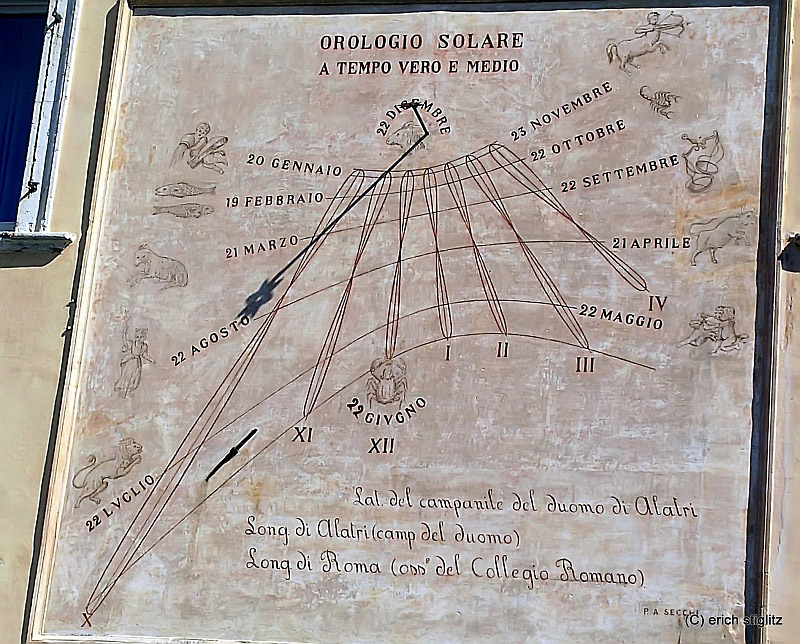 OROLOGIO SOLARE
A TEMPO VERO E MEDIO
22 DICEMBRE
23 NOVEMBRE
22 OTTOBRE
20 GENNAIO
22 SETTEMBRE
19 FEBBRAIO
21 MARZO
21 APRILE
IV
22 MAGGIO
22 AGOSTO
I
II
III
22 GIVGNO
XI
XII
22 LVGLIO
X
Lat. del campanile del duomo di Alatri
Long di Alatri (camp del duomo)
Long di Roma (oss° del Collegio Romano)
P. A. SECCHI
(C) erich stiglitz